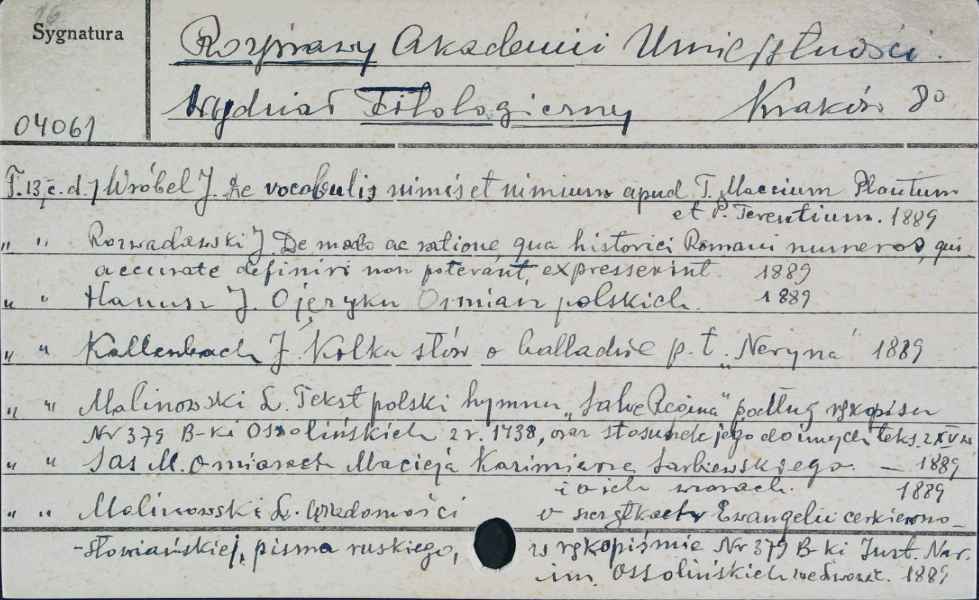 Sygnatura
Rozprawy Akademii Umiejętności.
Wydział Filologiczny Kraków 8o
04061
T. 13 c. d. Wróbel J. De vocabulis nimis et nimium apud T. Maccium Plautum
et P. Terentium. 1889
„ „ Rozwadowski J De modo ac ratione qua historici Romani numeros, qui
accurate definiri non poterant, expresserint. 1889
„ „ Hanusz J. O języku Ormian polskich. 1889
„ „ Kallenbach J. Kilka słów o balladzie p. t. „Neryna" 1889
„ „ Malinowski L. Tekst polski hymnu „Salve Regina" podług rękopisu
Nr 379 B-ki Ossolińskich z r. 1438, oraz stosunek jego do innych teks. z XV w.
„ „ Sas M. O miarach Macieja Kazimierza Sarbiewskiego. — 1889
i o ich wzorach. 1889
„ „ Malinowski L. Wiadomości o Ewangelii cerkiewno-
-słowiańskiej, pisma ruskiego, w rękopiśmie Nr 379 B-ki Inst. Nar.
im. Ossolińskich we Lwowie. 1889